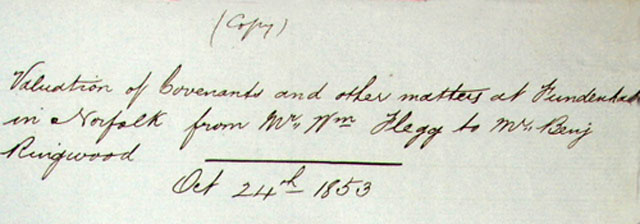 (Copy)
Valuation of Covenants and other matters at Fundenhall
in Norfolk from Mr. Wm Flegg to Mr. Benj
Ringwood
Oct 24th 1853